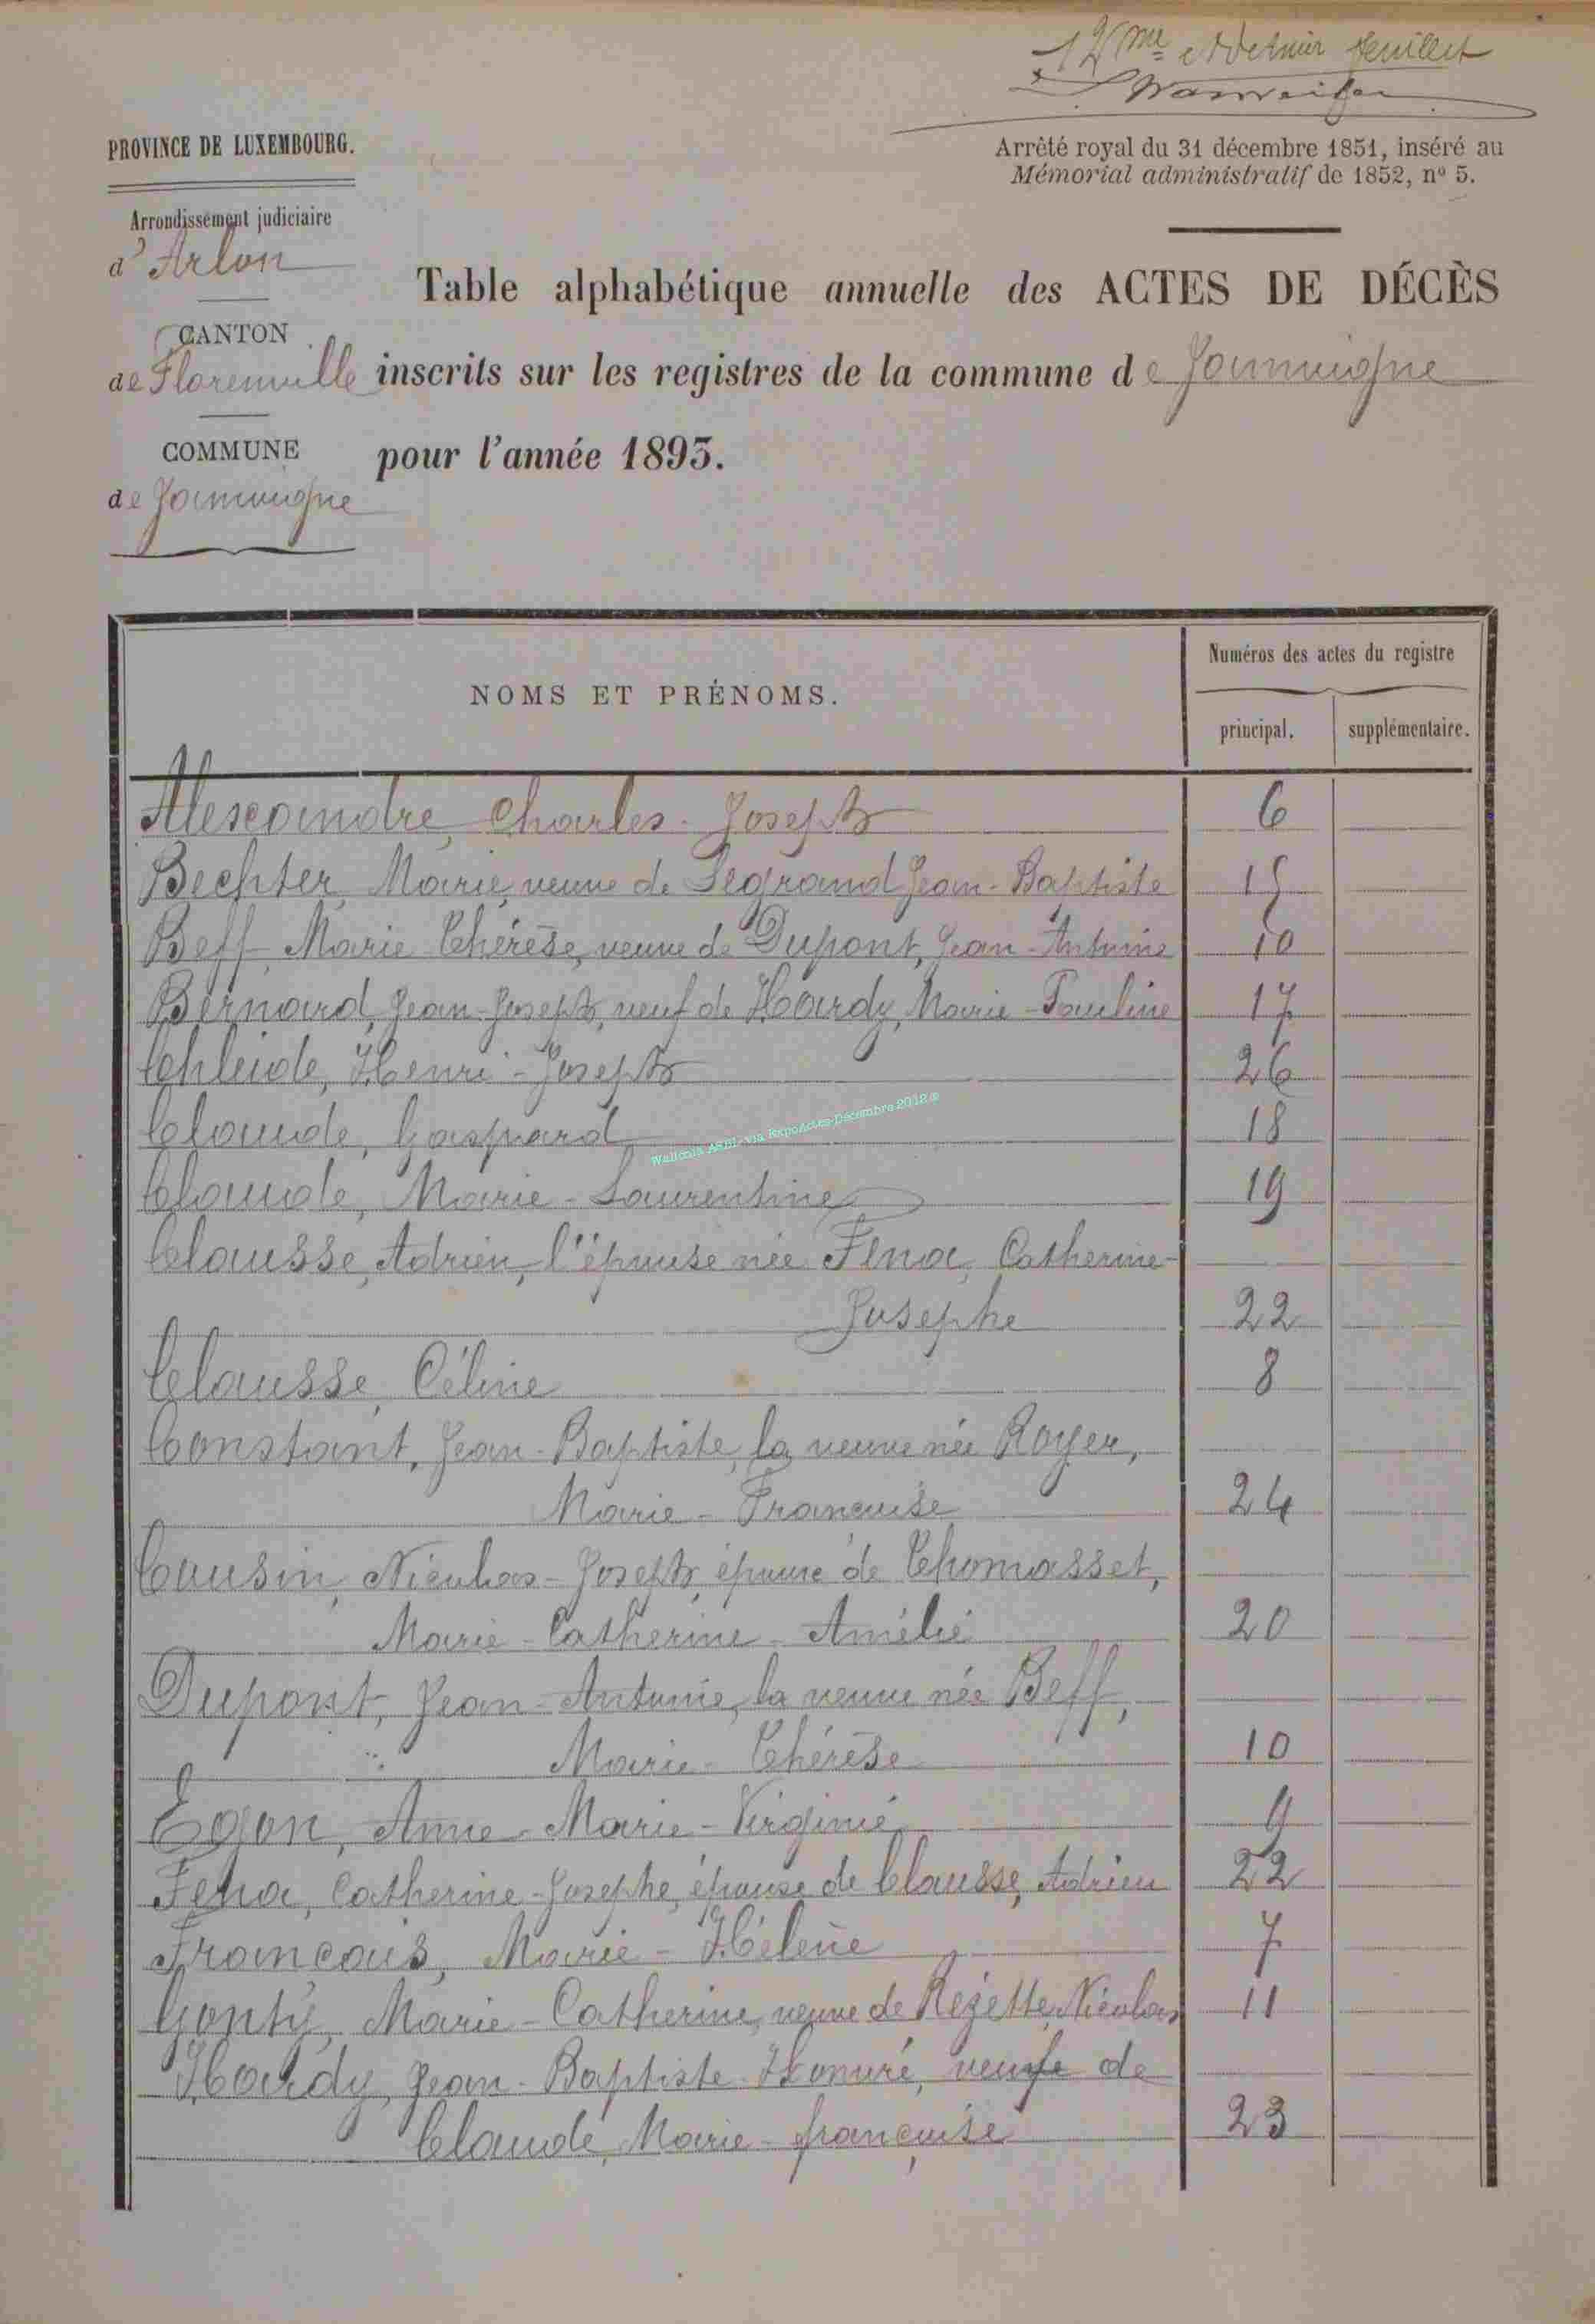 12me et dernier feuillet
PROVINCE DE LUXEMBOURG.
Arrêté royal du 31 décembre 1851, inséré au
Mémorial administratif de 1852, nº 5.
Arrondissement judiciaire
d'Arlon
Table alphabétique annuelle des ACTES DE DÉCÈS
CANTON
de Florenville
inscrits sur les registres de la commune de Jamoigne
COMMUNE
pour l'année 1893.
de Jamoigne
NOMS ET PRÉNOMS.
Numéros des actes du registre
principal. supplémentaire.
Alexandre, Charles-Joseph 6
Bechter, Marie, veuve de Legrand Jean-Baptiste 15
Beff, Marie Thérèse, veuve de Dupont, Jean-Antoine 10
Bernard, Jean-Joseph, veuf de Hardy, Marie-Pauline 17
Chleide, Henri-Joseph 26
Claude, Gaspard 18
Wallonia ASBL-via ExpoActes-Décembre 2012 ©
Claude, Marie-Laurentine 19
Clausse, Adrien, l'épouse née Fena, Catherine-
Josephe 22
Clausse, Céline 8
Constant, Jean-Baptiste, la veuve née Royer,
Marie-Françoise 24
Cousin, Nicolas-Joseph, époux de Thomasset,
Marie-Catherine-Amélie 20
Dupont, Jean-Antoine, la veuve née Beff,
Marie-Thérèse 10
Egon, Anne-Marie-Virginie 9
Fena, Catherine-Josephe, épouse de Clausse, Adrien 22
François, Marie-Hélène 7
Gonty, Marie-Catherine, veuve de Rezette, Nicolas 11
Hardy, Jean-Baptiste-Honoré, veuf de
Claude, Marie-françoise 23